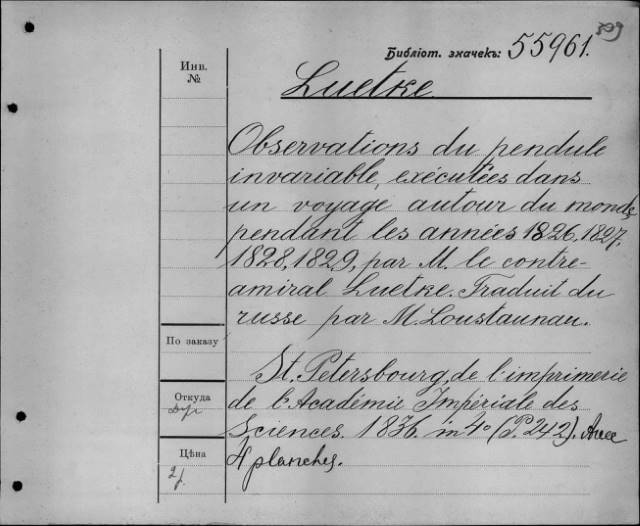 509
Библіот. значекъ: 55961.
Инв. №
Luetke
Observations du pendule
invariable, exécutées dans
un voyage autour du monde
pendant les années 1826, 1827,
1828, 1829, par M. le contre-
amiral Luetke. Traduit du
russe par M. Loustaunau.
По заказу
St. Petersbourg, de l'imprimerie
Откуда
de l'Académie Impériale des
Sciences. 1836. in 4º (P. 242). Avec
Цѣна
4 planches.